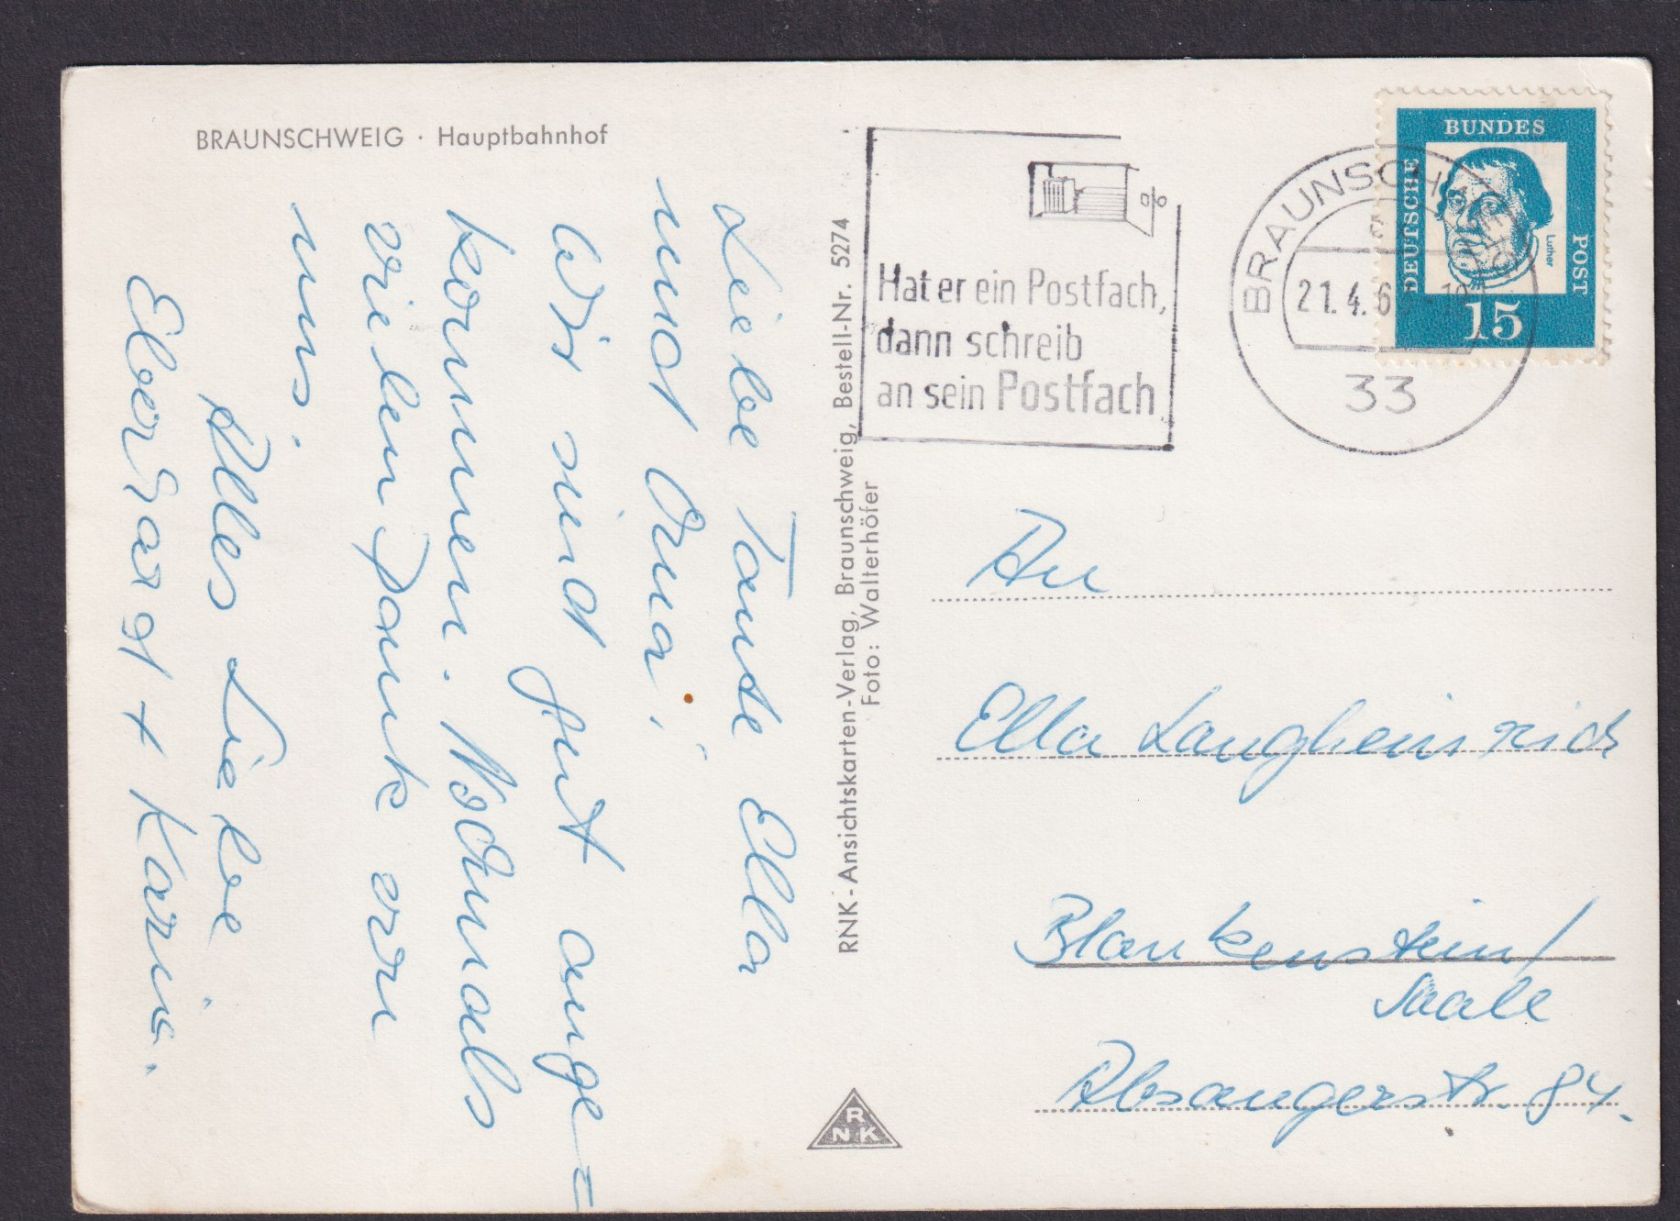 BRAUNSCHWEIG · Hauptbahnhof
Liebe Tante Ella
und Oma!
Wir sind gut ange=
kommen. Nochmals
vielen Dank von
uns.
Alles Liebe
Eberhard + Karin.
RNK-Ansichtskarten-Verlag, Braunschweig, Bestell-Nr. 5274
Foto: Walterhöfer
RNK
Hat er ein Postfach,
dann schreib
an sein Postfach
BRAUNSCHWEIG
21.4.6
33
DEUTSCHE
BUNDES
POST
Luther
15
An
Ella Langheinrich
Blankenstein/
Saale
Absangerstr. 84.